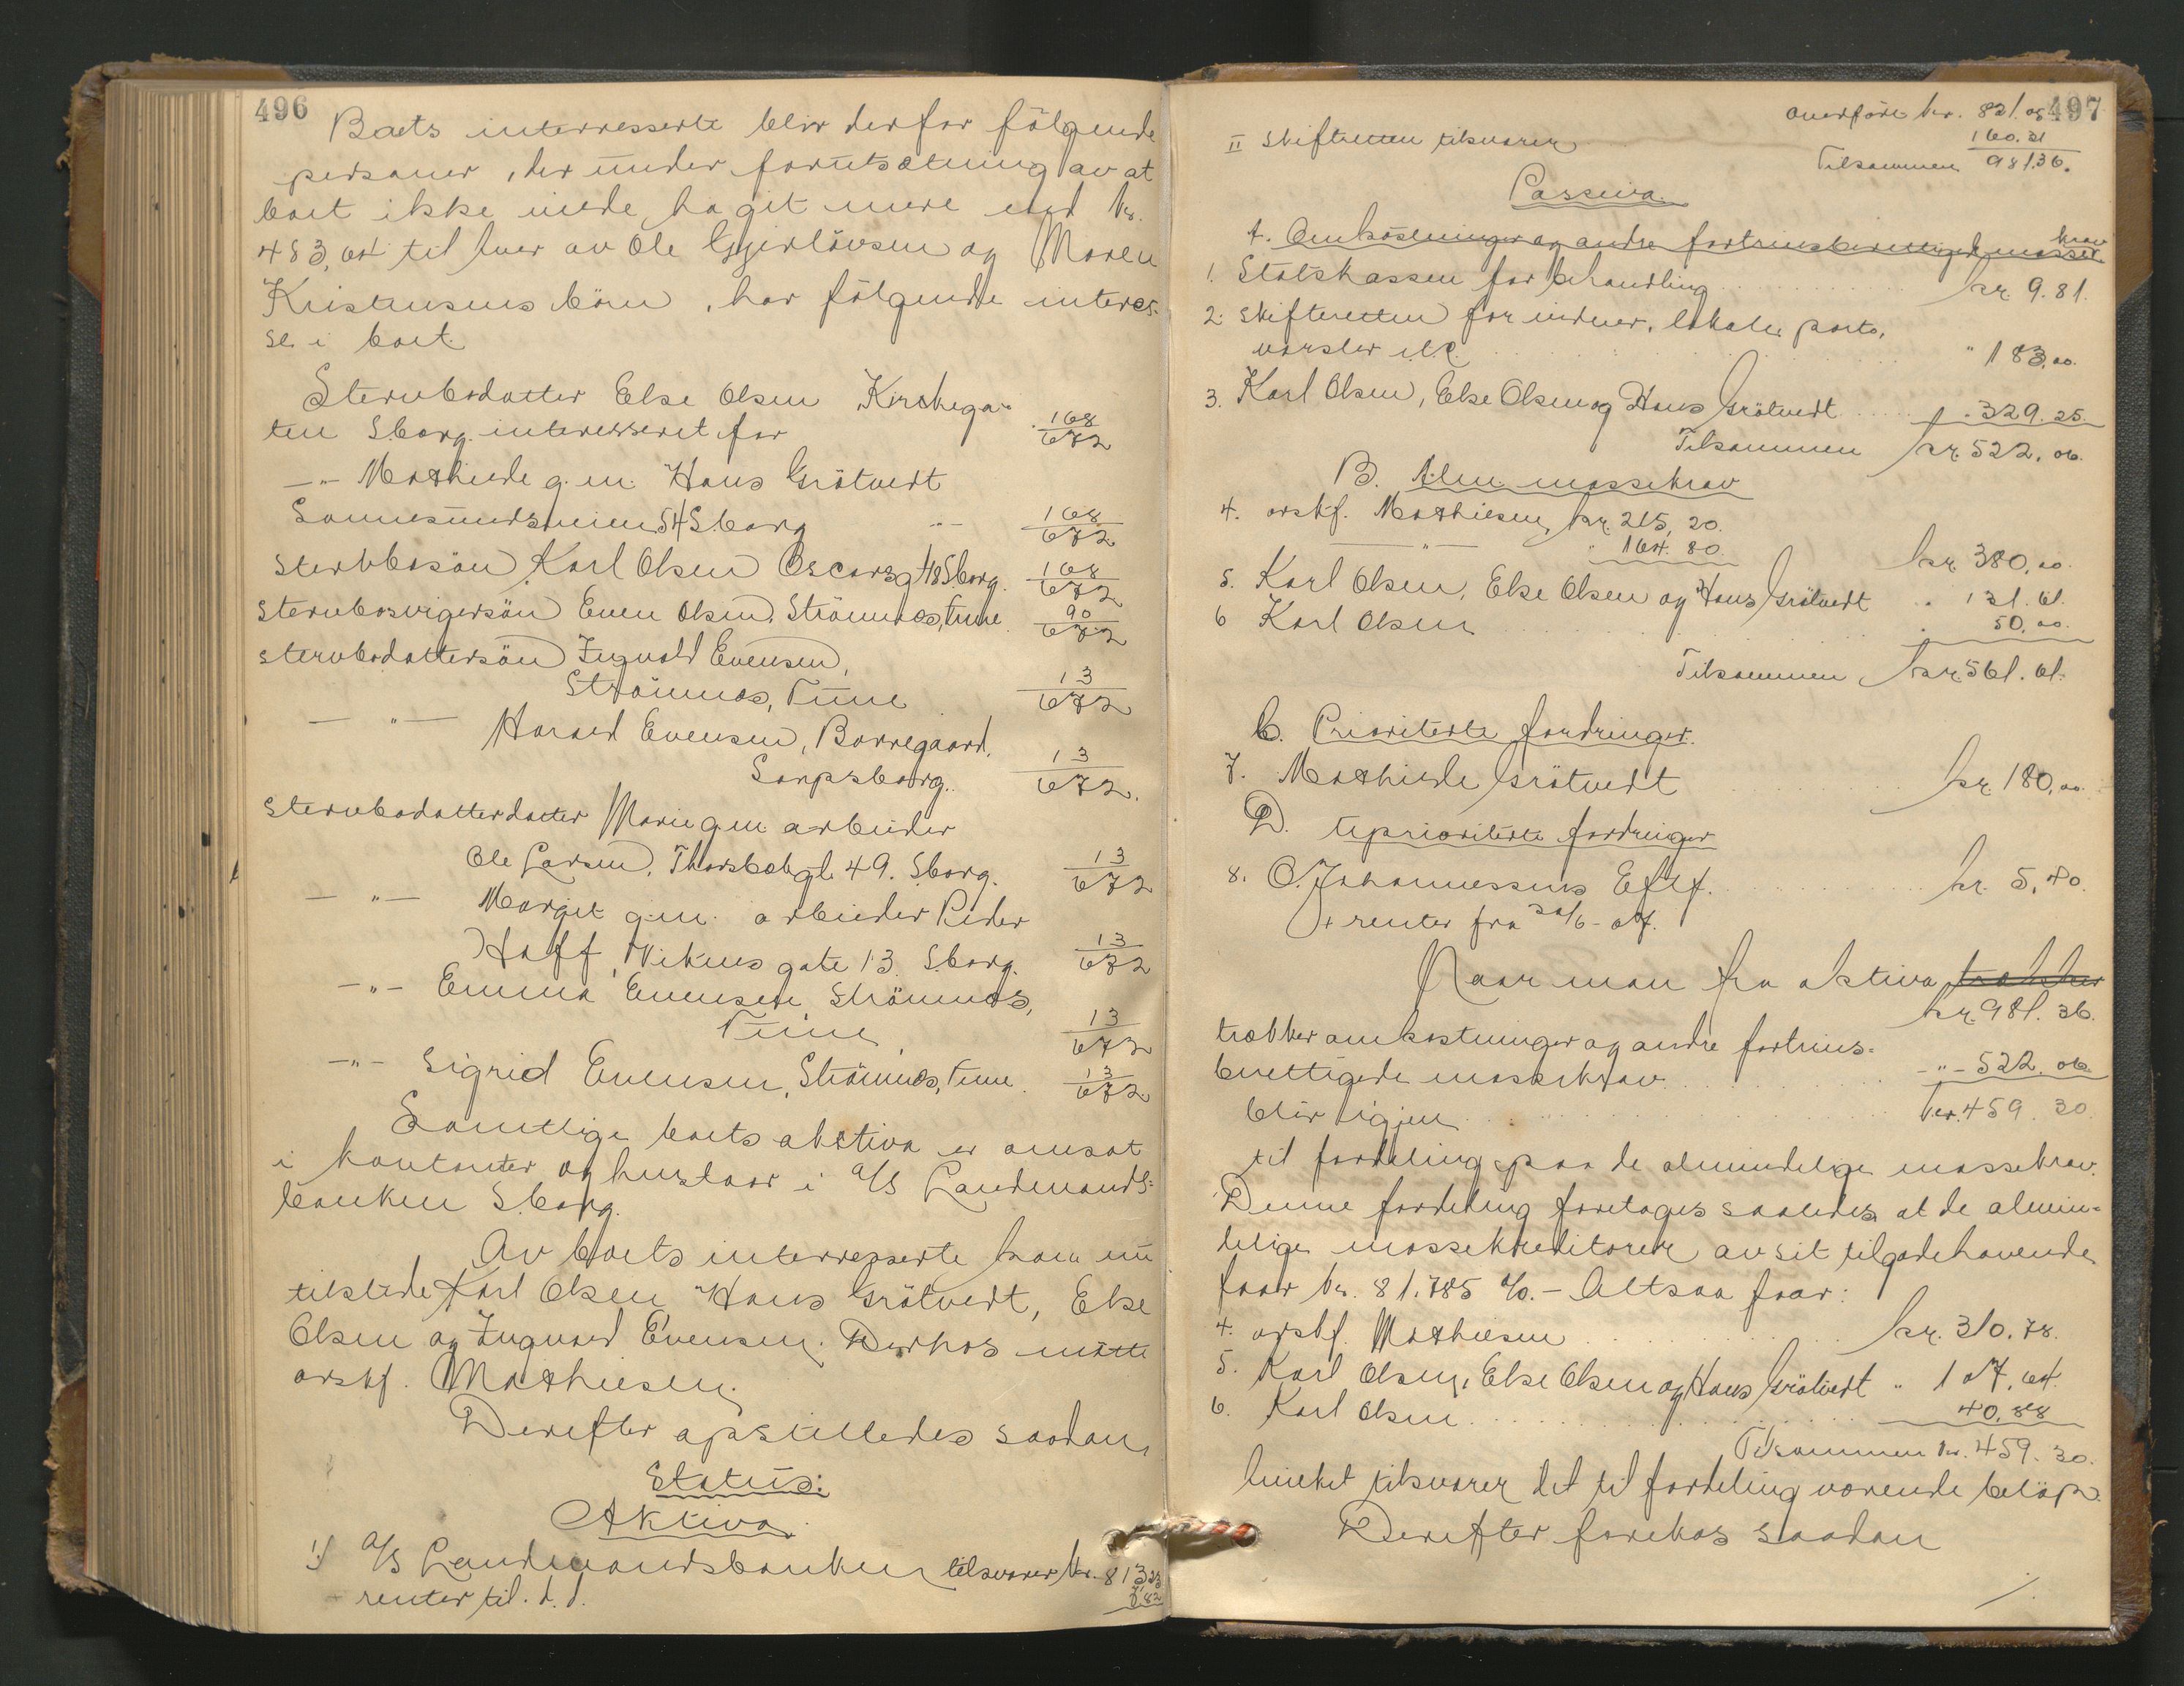 496
Boets interresserte blir derfor fölgende
personer, der under forutsætning av at
boet ikke inede ha git mere end kr.
483,64 til hver av Ole Gjerlövsen og Maren
Kristensens börn, har fölgende interes-
se i boet.
Stervbodatter Else Olsen Kirchega-
ten Sborg. interesseret for 168/672
—"— Mathilde g.m. Hans Grötvedt
Sannesundsveien 54 Sborg —"— 168/672
stervbosön Karl Olsen Oscarsg 48 Sborg. 168/672
stervbosvigersön Even Olsen, Strömnes, Tune 90/672
stervbodattersön Ingvald Evensen,
Strömnes, Tune 13/672
—"— Harald Evensen, Borregaard,
Sarpsborg. 13/672.
stervbodatterdatter Marie gm arbeider
Ole Larsen, Thorsbekgt. 49. Sborg. 13/672
—"— Margit g.m. arbeider Peder
Hoff, Vikens gate 13 Sborg. 13/672
—"— Emma Evensen Strömnes,
Tune 13/672
—"— Sigrid Evensen, Strömnes, Tune. 13/672
Samtlige boets aktiva er omsat
i kontanter og henstaar i A/S Landmands-
banken Sborg.
Av boets interresserte kom nu
tilstede Karl Olsen Hans Grötvedt, Else
Olsen og Ingvald Evensen. Derhos mötte
orskf. Mathiesen.
Derefter opstilledes saadan
Status:
Aktiva
1) A/S Landmandsbanken tilsvarer kr. 813,23
renter til d.d. 7,82
497
overföre kr. 821.05
II Skifteretten tilsvarer 160.31
Tilsammen 981,36.
Passiva.
A. Omkostninger og andre fortrinsberettigede masse-
krav
1. Statskassen for behandling kr. 9.81.
2. Skifteretten for indkr. lokale, porto,
varsler etc. " 183,00.
3. Karl Olsen, Else Olsen og Hans Grötvedt " 329.25.
Tilsammen kr. 522,06.
B. Alm. massekrav
4. orskf. Mathiesen, kr. 215,20.
—"— " 164.80. kr. 380,00.
5. Karl Olsen, Else Olsen og Hans Grötvedt " 131.61.
6 Karl Olsen " 50,00.
Tilsammen kr. 561.61.
C. Prioriterte fordringer.
7. Mathilde Grötvedt kr. 180,00.
D. Uprioriterte fordringer
8. O. Johannessens Eftf. kr. 5,40.
+ renter fra 30/6-07.
Naar man fra aktiva trækker
kr. 981.36.
trækker omkostninger og andre fortrins-
berettigede massekrav —"— 522.06
blir igjen kr. 459.30
til fordeling paa de almindelige massekrav.
Denne fordeling foretages saaledes at de almin-
delige massekreditorer av sit tilgodehavende
faar kr. 81.785 %. - Altsaa faar:
4. orskf. Mathiesen kr. 310.78.
5. Karl Olsen, Else Olsen og Hans Grötvedt " 107,64.
6. Karl Olsen 40,88
Tilsammen kr. 459.30.
hvilket tilsvarer det til fordeling værende belöp.
Derefter forekos saadan